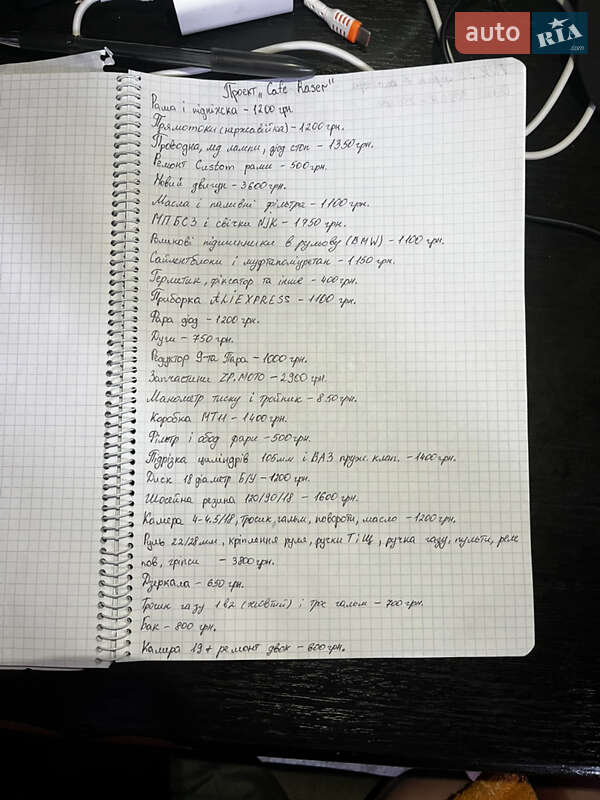 auto RIA .com
Проект „Cafe Raser"
Рама і підніжка - 1200 грн.
Прямотоки (нержавійка) - 1200 грн.
Проводка, лд лампи, діод стоп - 1350 грн.
Ремонт Custom рами - 500 грн.
Новий двигун - 3600 грн.
Масла і паливні фільтра - 1100 грн.
МПБСЗ і свічки NJK - 1750 грн.
підшипники в рульову (BMW) - 1100 грн.
Сайлентблоки і муфтаполіуретан - 1150 грн.
Герметик, фіксатор та інше - 400 грн.
Приборка ALIEXPRESS - 1100 грн.
Фара діод - 1200 грн.
Дуги - 750 грн.
Редуктор 9-та Пара - 1000 грн.
Запчастини ZP.MOTO - 2960 грн.
Манометр тиску і тройник - 850 грн.
Коробка МТ11 - 1400 грн.
Фільтр і обод фари - 500 грн.
Підрізка циліндрів 105мм і ВАЗ пруж. клап. - 1400 грн.
Диск 18 діаметр Б/У - 1200 грн.
Шосейна резина 120/90/18 - 1600 грн.
Камера 4-4.5/18, тросик, гальм, повороти, масло - 1200 грн.
Руль 22/28мм, кріплення руля, ручки Т і Щ, ручка газу, пульти, реле
пов, гріпси - 3800 грн.
Дзеркала - 650 грн.
Тросик газу 1 в 2 (жовтий) і трос гальм - 700 грн.
Бак - 800 грн.
Камера 19 + ремонт двох - 600 грн.